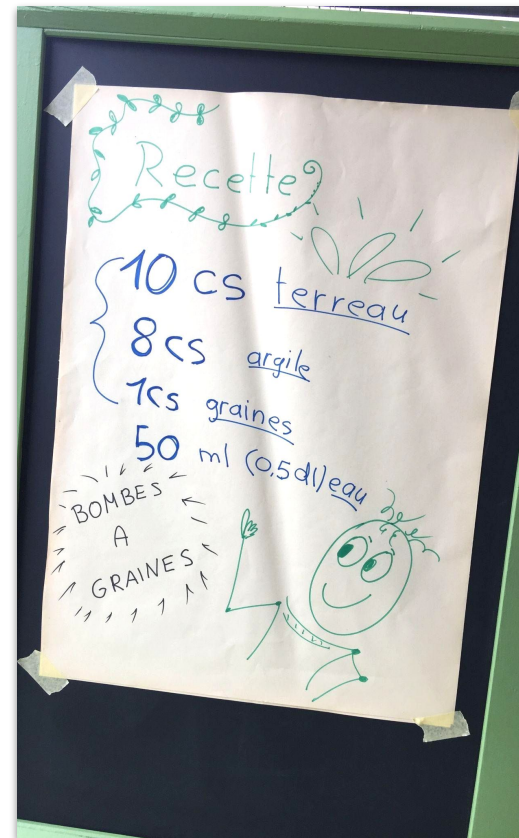 Recette
10 cs terreau
8cs argile
1cs graines
50 ml (0,5dl) eau
BOMBES
A
GRAINES